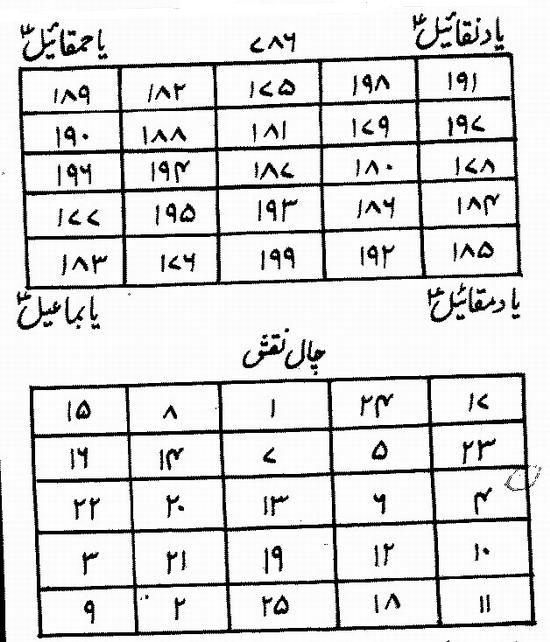 یا دنقائیلؑ ۷۸۶ یا حمقائیلؑ
۱۹۱ ۱۹۸ ۱۷۵ ۱۸۲ ۱۸۹
۱۹۷ ۱۷۹ ۱۸۱ ۱۸۸ ۱۹۰
۱۷۸ ۱۸۰ ۱۸۷ ۱۹۴ ۱۹۶
۱۸۴ ۱۸۶ ۱۹۳ ۱۹۵ ۱۷۷
۱۸۵ ۱۹۲ ۱۹۹ ۱۷۶ ۱۸۳
یا دمقائیلؑ یا بماعیلؑ
چال نقش
۱۷ ۲۴ ۱ ۸ ۱۵
۲۳ ۵ ۷ ۱۴ ۱۶
۴ ۶ ۱۳ ۲۰ ۲۲
۱۰ ۱۲ ۱۹ ۲۱ ۳
۱۱ ۱۸ ۲۵ ۲ ۹